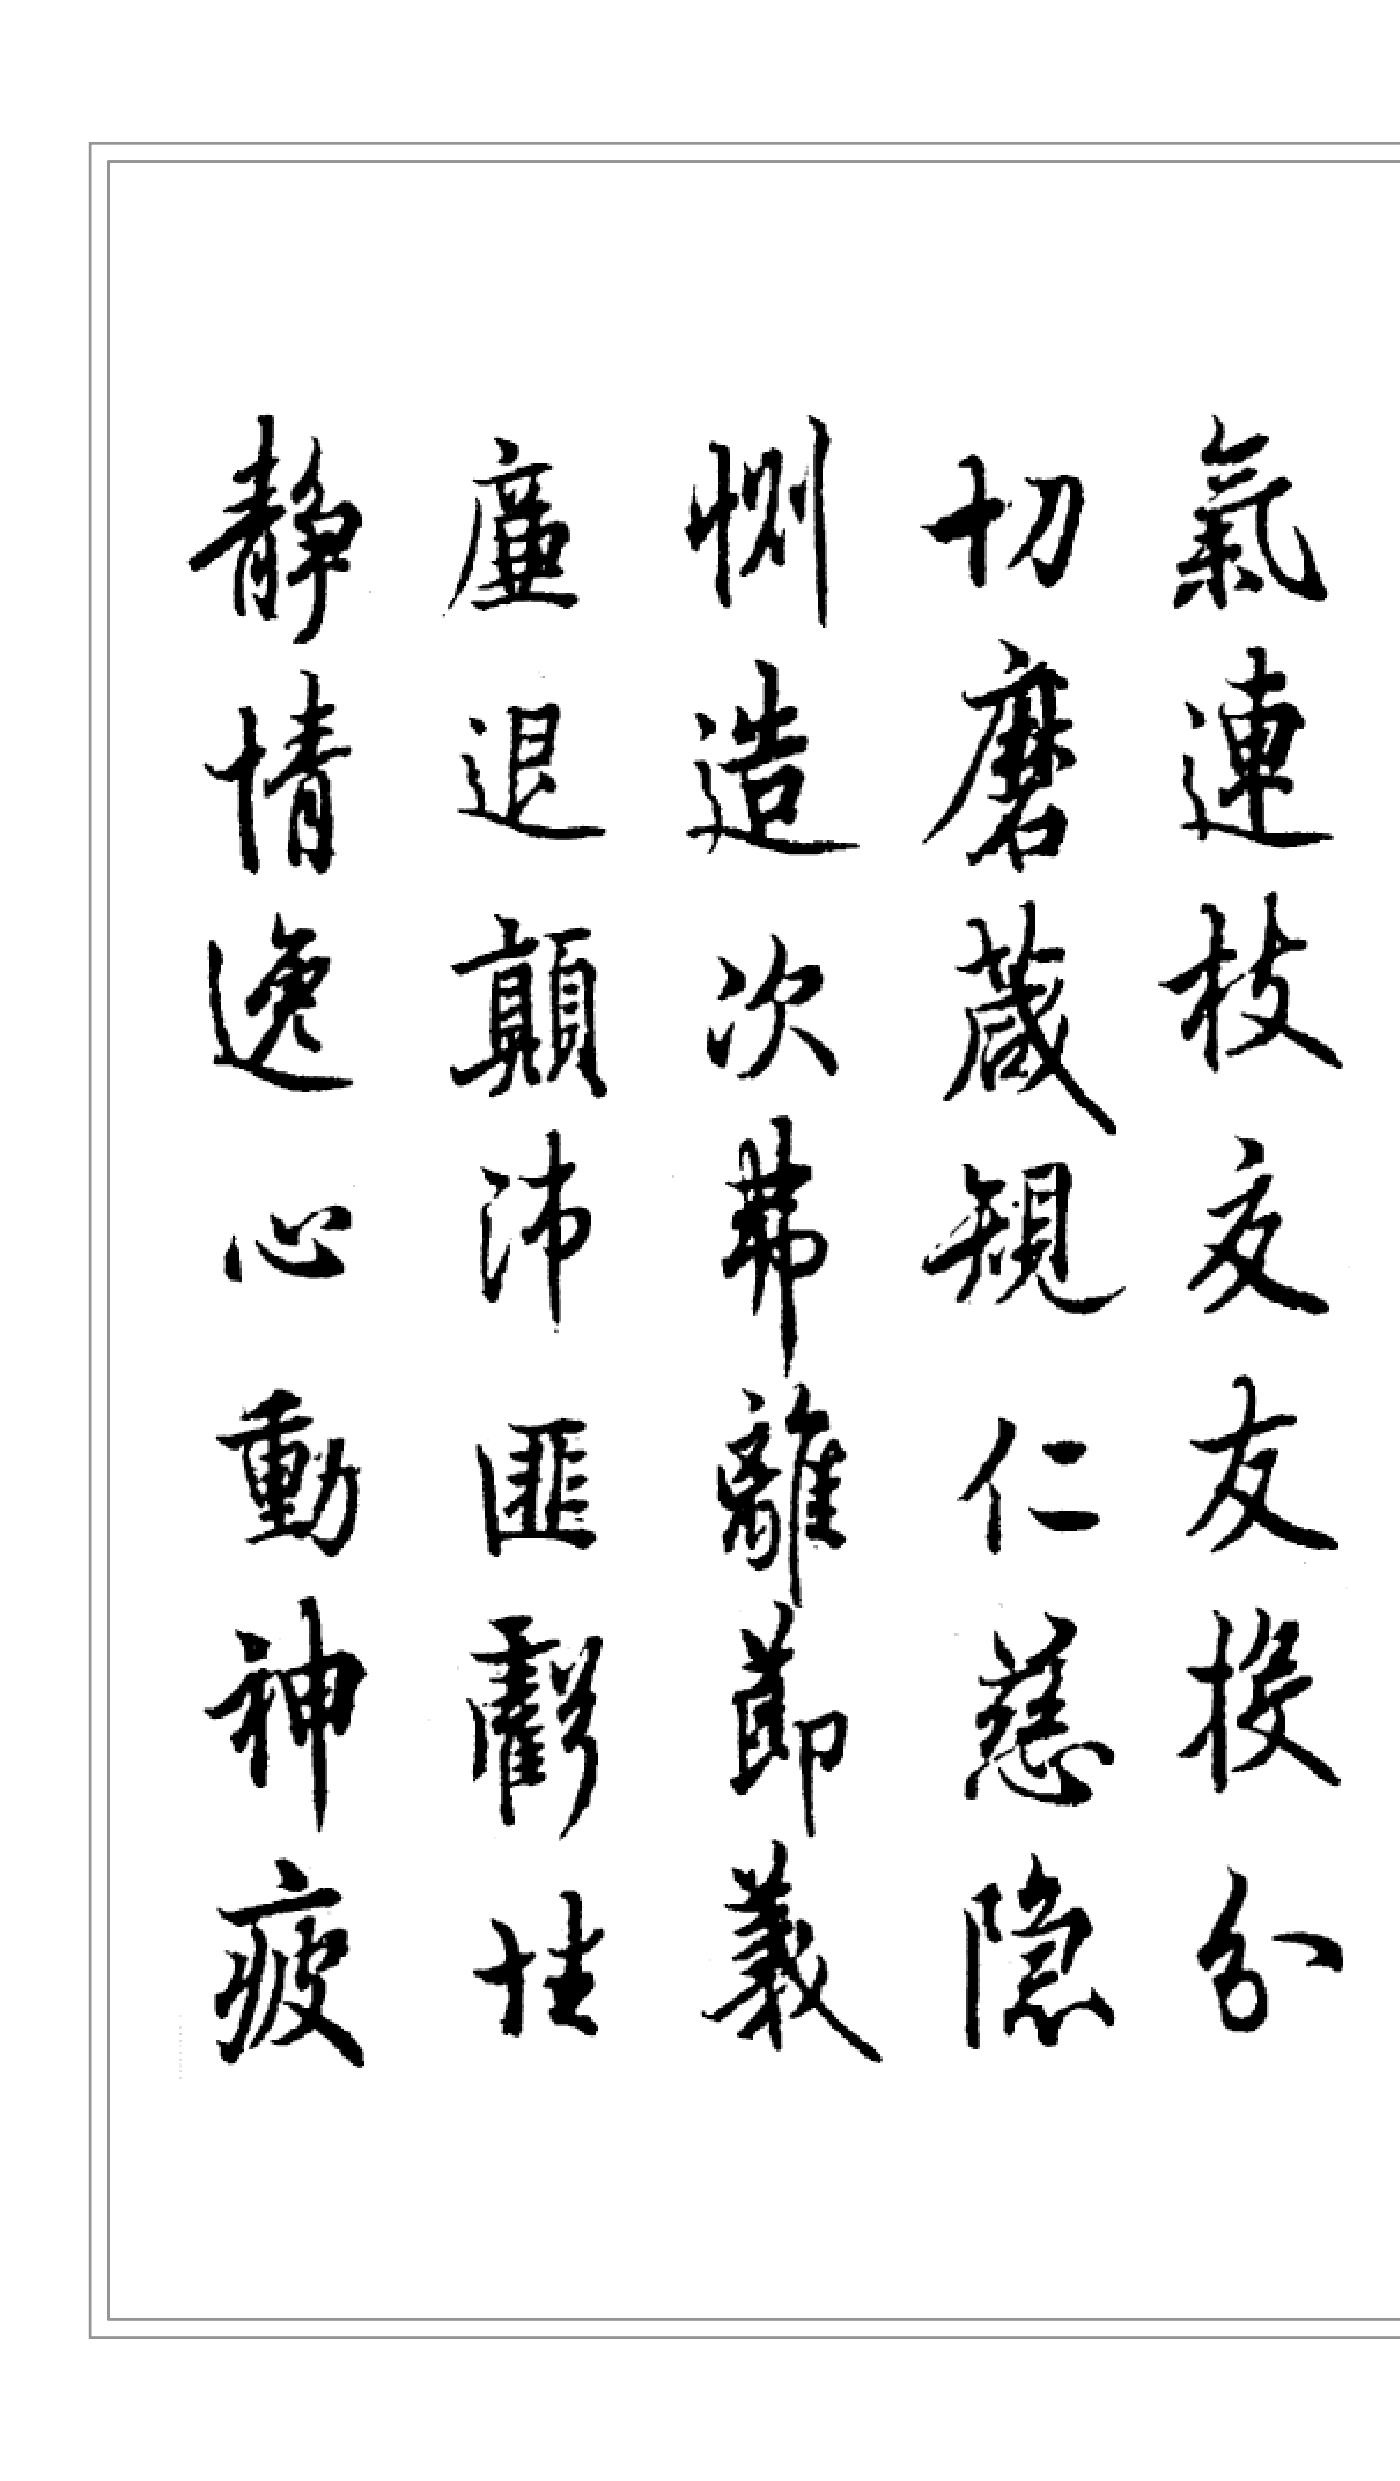 氣連枝交友投分
切磨箴規仁慈隱
惻造次弗離節義
廉退顛沛匪虧性
靜情逸心動神疲